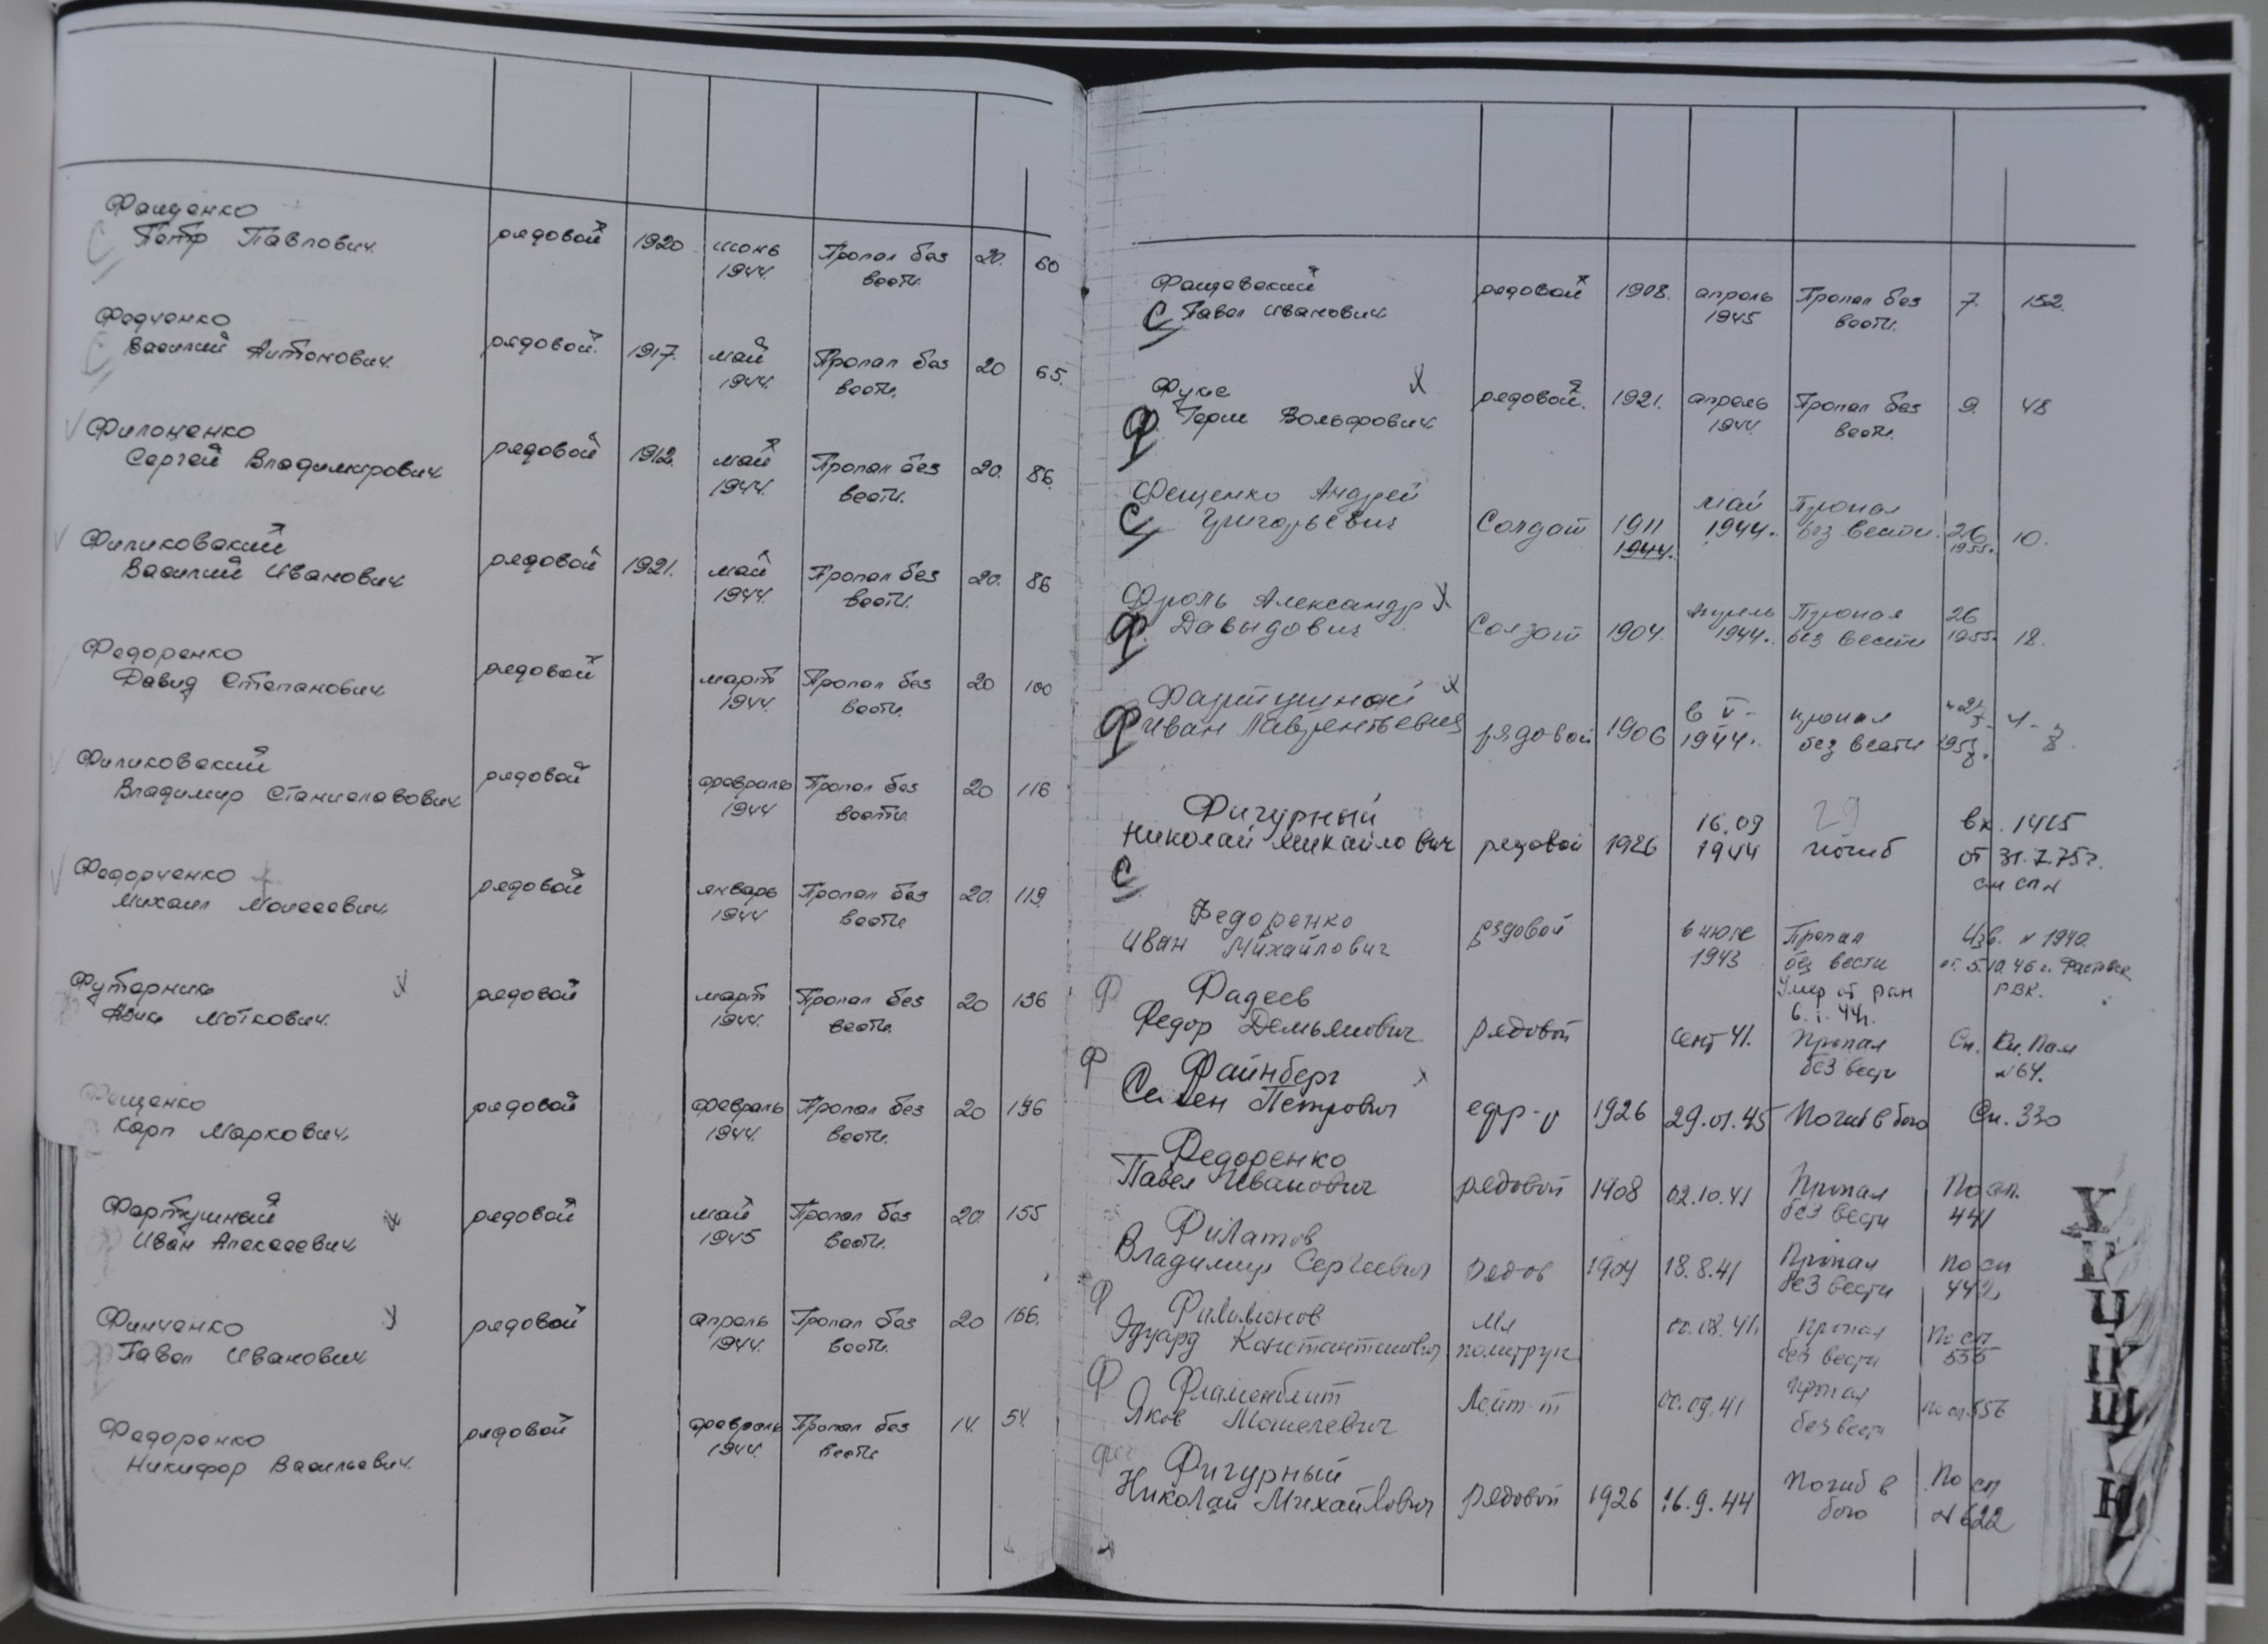 Фащенко
Петр Павлович рядовой 1920 июнь 1944. Пропал без вести. 20. 60
Федченко
Василий Антонович. рядовой. 1917. май 1944. Пропал без вести. 20 65.
Филоненко
Сергей Владимирович рядовой 1912. май 1944. Пропал без вести. 20. 86.
Филиковский
Василий Иванович рядовой 1921. май 1944. Пропал без вести. 20. 86
Федоренко
Давид Степанович рядовой март 1944. Пропал без вести. 20 100
Филиковский
Владимир Станиславович рядовой февраль 1944 Пропал без вести. 20 116
Федорченко
Михаил Моисеевич рядовой январь 1944 Пропал без вести 20. 119.
Футерник х
Моткович. рядовой март 1944. Пропал без вести. 20 136
Фещенко
Карп Маркович. рядовой февраль 1944. Пропал без вести. 20 136
Фартушный х
Иван Алексеевич рядовой май 1945 Пропал без вести. 20. 155
Финченко х
Павел Иванович рядовой апрель 1944. Пропал без вести. 20 166.
Федоренко
Никифор Васильевич. рядовой февраль 1944. Пропал без вести 14. 54.
Фащевский
С Павел Иванович рядовой 1908. апрель 1945 Пропал без вести. 7. 152.
Фукс х
Ф Герш Вольфович рядовой. 1921. апрель 1944. Пропал без вести. 9. 48
Фещенко Андрей
С Григорьевич Солдат 1911 1944. май 1944. Пропал без вести. 26 1955. 10.
Фроль Александр х
Ф Давыдович Солдат 1904. апрель 1944. Пропал без вести 26 1955. 18.
Фартушной х
Ф Иван Лаврентьевич рядовой 1906 в V- 1944. пропал без вести
Фигурный
Николай Михайлович рядовой 1926 16.09 1944 29 погиб вх. 1415 от 31.7.75г.
С
Федоренко
Иван Михайлович рядовой в июле 1943 Пропал без вести Изв. № 1940 от 5.10.46 г. РВК.
Умер от ран 6.1.44г.
Ф Фадеев
Федор Демьянович рядовой сент 41. Пропал без вести Сп. Кн. Пам №64.
Ф Файнберг х
Семен Петрович ефр-р 1926 29.01.45 Погиб в бою Сп. 330
Федоренко
Павел Иванович рядовой 1908 02.10.41 Пропал без вести По сп. 441
Филатов
Владимир Сергеевич рядов 1904 18.8.41 Пропал без вести по сп 442
Ф Филимонов
Эдуард Константинович Мл политрук 00.08.41. Пропал без вести По сп 555
Ф Фламенблит
Яков Мошелевич Лейт-т 00.09.41 Пропал без вести по сп.556
Фигурный
Николай Михайлович рядовой 1926 16.9.44 Погиб в бою По сп №622
Х
Ц
Щ
Ю